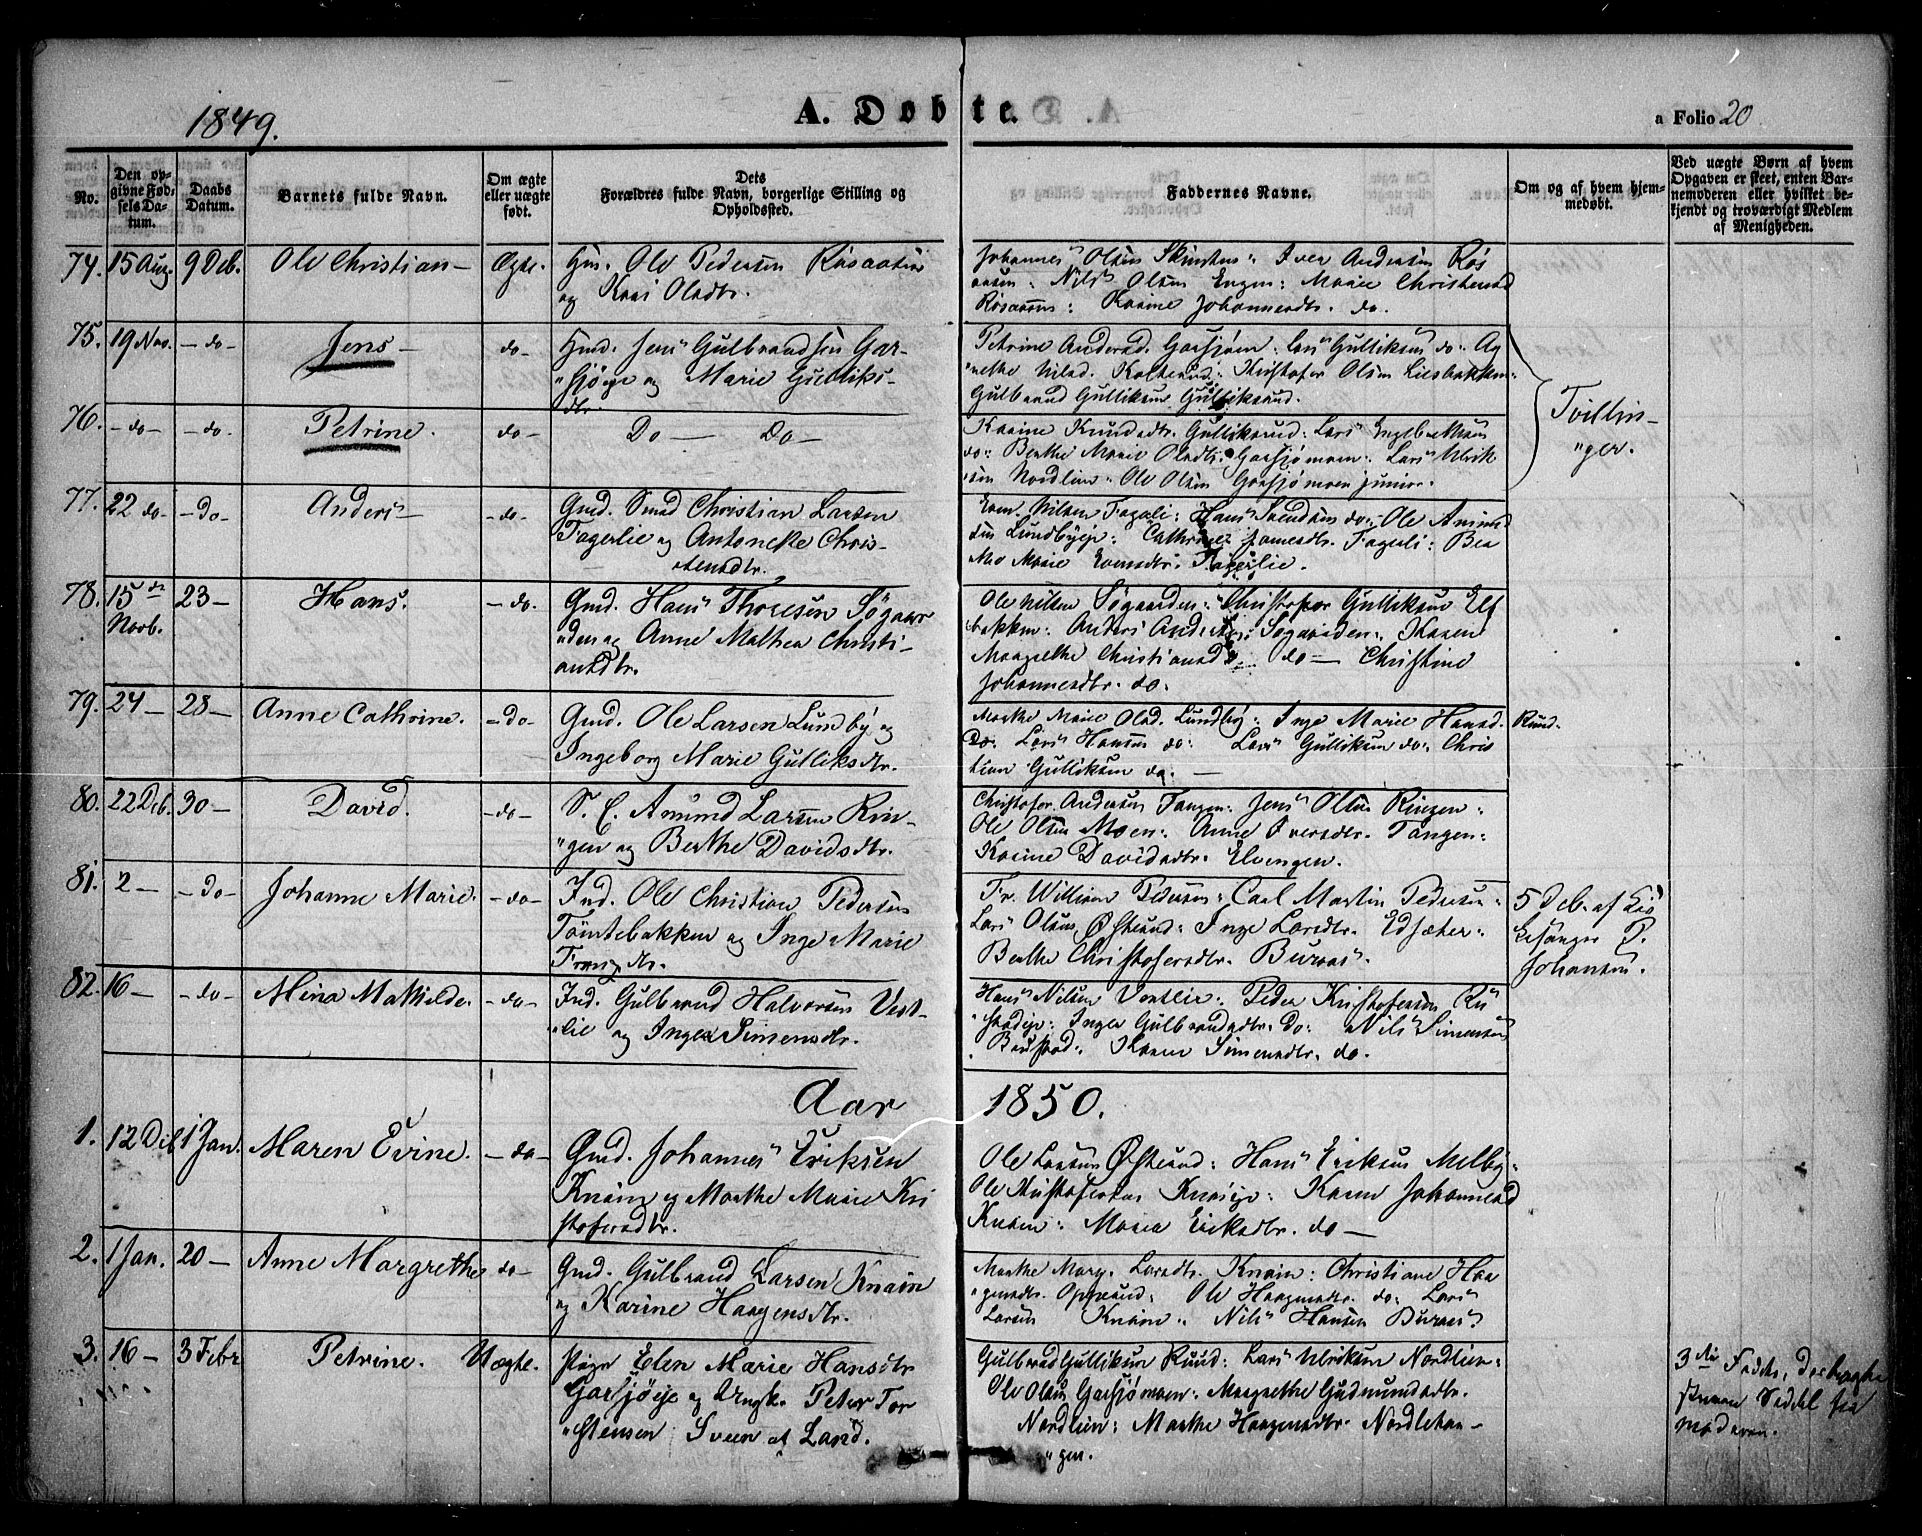 1849.
A. Døbte.
a Folio 20
No.
Den op-
givne Fød-
sels Da-
tum.
Daabs
Datum.
Barnets fulde Navn.
Om ægte
eller uægte
født.
Dets
Forældres fulde Navn, borgerlige Stilling og
Opholdssted.
Faddernes Navne.
Om og af hvem hjem-
medøbt.
Ved uægte Børn af hvem
Opgaven er skeet, enten Bar-
nemoderen eller hvilket be-
kjendt og troværdigt Medlem
af Menigheden.
74. 15 Aug. 9 Deb. Ole Christian – Ægte. Ole Pedersen
og Kari Olsdtr.
Johannes Olsen Iver Andersen Røs
Nils Olsen Engen: Marie Christensd
Karine Johannesdtr. do.
75. 19 Nov. – do – Jens – do – Gmd. Jens Gulbrandsen Gar-
"sjøeje og Marie Gulliks-
dtr.
Petrine Andersd. Garsjøen: Lars Gulliksen do: Ag
"nethe Nilsd. Kristofer Olsen Liesbakken:
Gulbrand Gulliksen Gulliksrud.
Tvillin-
"ger.
76. – do – – do – Petrine. do – Do – Do –
Karine Knudsdtr. Gulliksrud: Lars Engebretsen
do: Berthe Marie Olsdtr. Garsjømoen: Lars Ulrik
sen Nordlien: Ole Olsen Garsjømoen junior.
77. 22 do – – Do – Anders – – do – Gmd. Smed Christian Larsen
Fagerlie og Antonethe Chris-
stensdtr.
Even Nilsen Fagerli: Hans Svendsen do: Ole Amund
sen Lundbyeje: Cathrine Fagerli: Bea
Marie Evensdtr. Fagerlie.
78. 15 de
Novb. 23 – Hans. – do. Gmd. Hans Thoresen Søgaar
"den og Anne Mathea Christi-
ansdtr.
Ole Nilsen Søgaarden: Christofer Gulliksen Elf
bakken: Anders Søgaarden: Karen
Margrethe Christiansd do – Christine
Johannesdtr. do.
79. 24 – 28 – Anne Cathrine. – Do – Gmd. Ole Larsen Lundby og
Ingeborg Marie Gulliksdtr.
Marthe Marie Olsd. Lundby: Inge Marie Hansd. Ruud.
Do: Lars Hansen do: Lars Gulliksen do: Chris
tian Gulliksen do. –
80. 22 Deb. 30 – David. – do – S. E. Amund Larsen Rin-
"gen og Berthe Davidsdtr.
Christofer Andersen Tangen: Jens Olsen Ringen:
Ole Olsen Moen: Anne Iversdtr. Tangen:
Karine Davidsdtr. Elvengen.
81. 2 – – do – Johanne Marie. – do – Ind. Ole Christian Pedersen
Tømtebakken og Inge Marie
Fransdtr.
Fr. William Pedersen: Carl Martin Pedersen:
Lars Olsen Østerud: Inge Larsdtr. Edsæter:
Berthe Christofersdtr. Buraas.
5 Deb. af Kir
kesanger P.
Johansen.
82. 16 – – do – Mina Mathilde. – do – Ind. Gulbrand Halvorsen Vest-
"lie og Inger Simensdtr.
Hans Nilsen Vestlie: Peder Kristofersen Ru
"stadeje: Inger Gulbrandsdtr. do: Nils Simensen
Baustad: Karen Simensdtr. do.
Aar 1850.
1. 12 Deb 1 Jan. Maren Evine. – do – Gmd. Johannes Eriksen
Knain og Marthe Marie Kri
stofersdtr.
Ole Larsen Østerud: Hans Eriksen Melby:
Ole Kristofersen Knaineje: Karen Johannesd
Knain: Maria Eriksdtr. do –
2. 1 Jan. 20 – Anne Margrethe do – Gmd. Gulbrand Larsen Knain
og Karine Haagensdtr.
Marthe Marg. Larsdtr. Knain: Christiane Haa
"gensdtr. Opperud: Ole Haagensdtr. do: Lars
Larsen Knain: Nils Hansen Buraas.
3. 16 – 3 Febr Petrine. Uægte. Pige Elen Marie Hansdtr
Garsjøeje og Ungk. Peter Tor
"stensen Sveen af Land.
Gulbrand Gulliksen Ruud: Lars Ulriksen Nordlien:
Ole Olsen Garsjømoen: Margrethe Gudmundsdtr.
Nordlien: Marthe Haagensdtr. Nordlehau-
"gen.
3die Fadder, der bragte
Seddel fra
moderen.